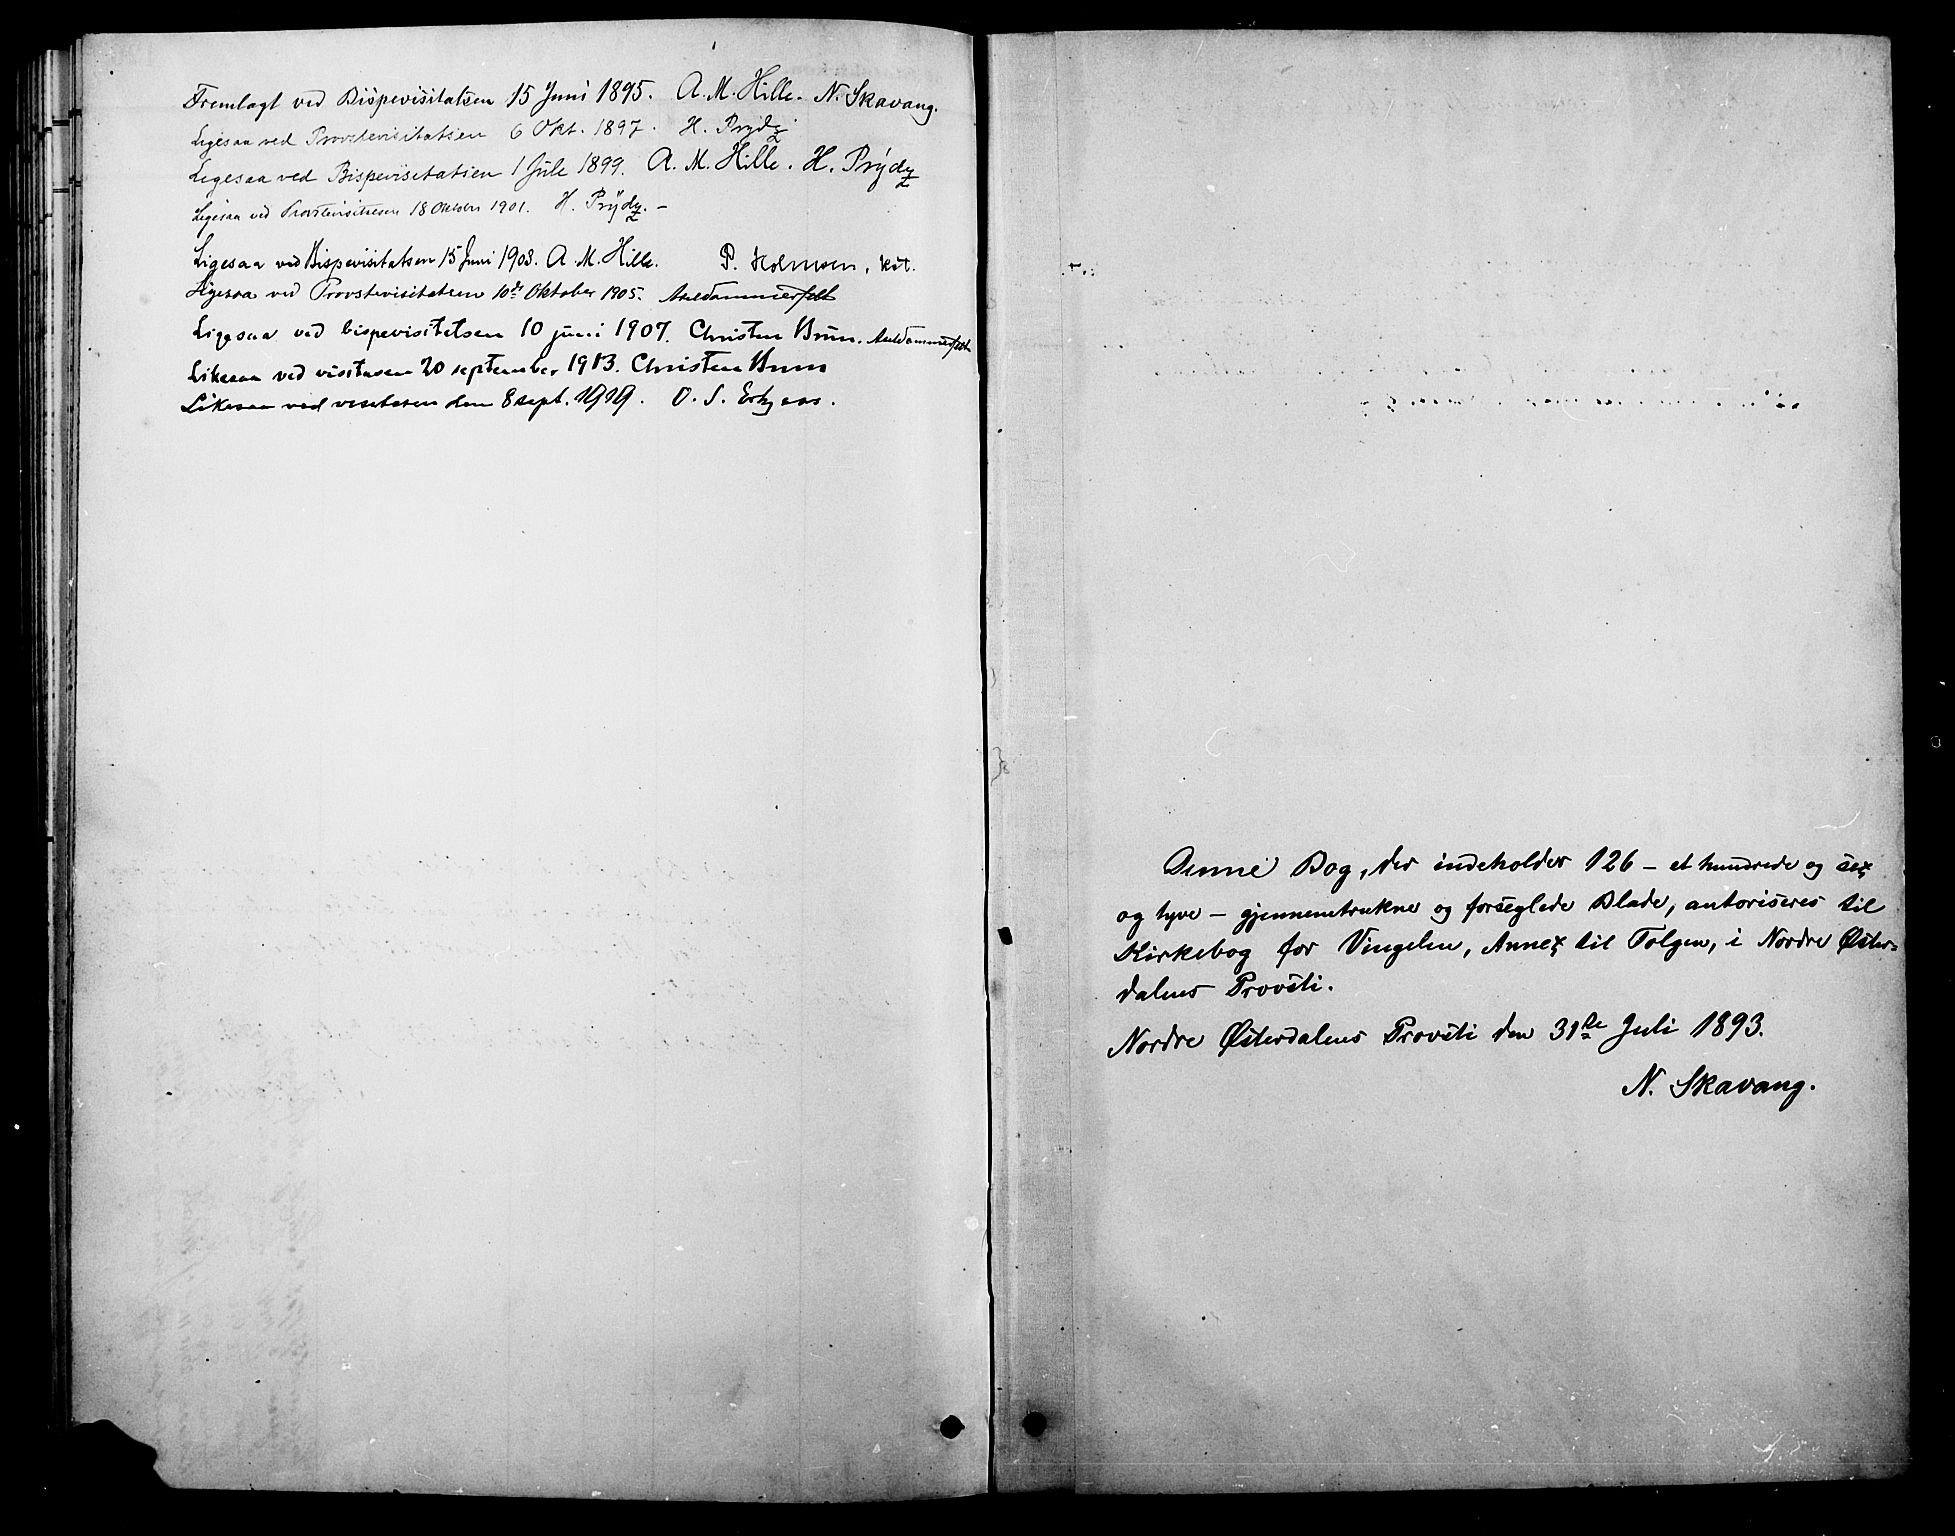 Fremlagt ved Bispevisitatsen 15 Juni 1895. A. M. Hille. N. Skavang.
Ligesaa ved Provstevisitatsen 6 Okt. 1897. H. Prydz
Ligesaa ved Bispevisitatsen 1 Juli 1899. A. M. Hille. H. Prydz
Ligesaa ved Provstevisitatsen 18 Oktober 1901. H. Prydz. –
Ligesaa ved Bispevisitatsen 15 Juni 1903. A. M. Hille. P. Holmsen, kst.
Ligesaa ved Provstevisitatsen 10de Oktober 1905.
Ligesaa ved bispevisitatsen 10 juni 1907. Christen Brun.
Likesaa ved visitasen 20 september 1913. Christen Brun
Likesaa ved visitasen den 8 sept. 1919. O. S.
Denne Bog, der indeholder 126 – et hundrede og sex
og tyve – gjennemtrukne og forseglede Blade, autoriseres til
Kirkebog for Vingelen, Annex til Tolgen, i Nordre Øster-
dalens Provsti.
Nordre Østerdalens Provsti den 31te Juli 1893.
N. Skavang.